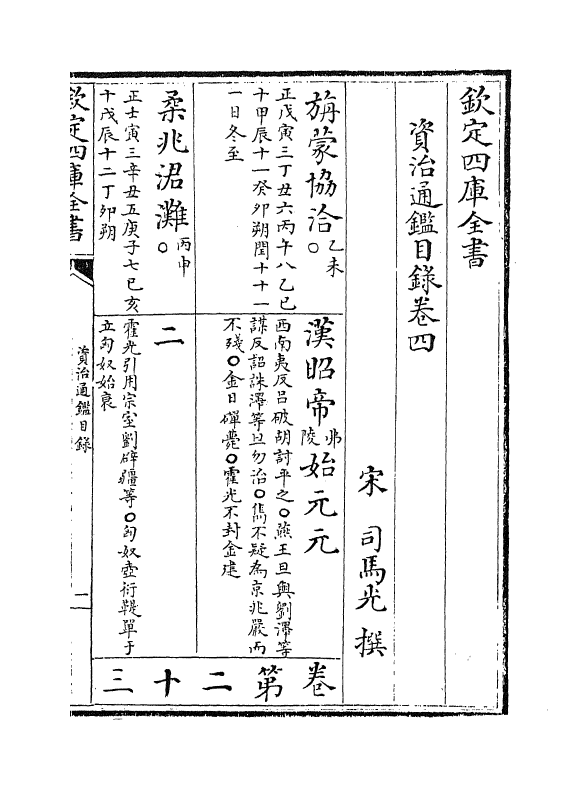 欽定四庫全書
資治通鑑目錄卷四
宋 司馬光 撰
旃蒙協洽乙未○
正戊寅三丁丑六丙午八乙巳
十甲辰十一癸卯朔閏十十一
一日冬至
漢昭帝弗陵始元元
西南夷反呂破胡討平之○燕王旦與劉澤等
謀反詔誅澤等旦勿治○雋不疑為京兆嚴而
不殘○金日磾薨○霍光不封金建
卷第二十三
桑兆涒灘丙申○
正壬寅三辛丑五庚子七已亥
十戊辰十二丁夘朔
二
霍光引用宗室劉辟疆等○匈奴壺衍鞮單于
立匈奴始衰
欽定四庫全書
資治通鑑目錄
二